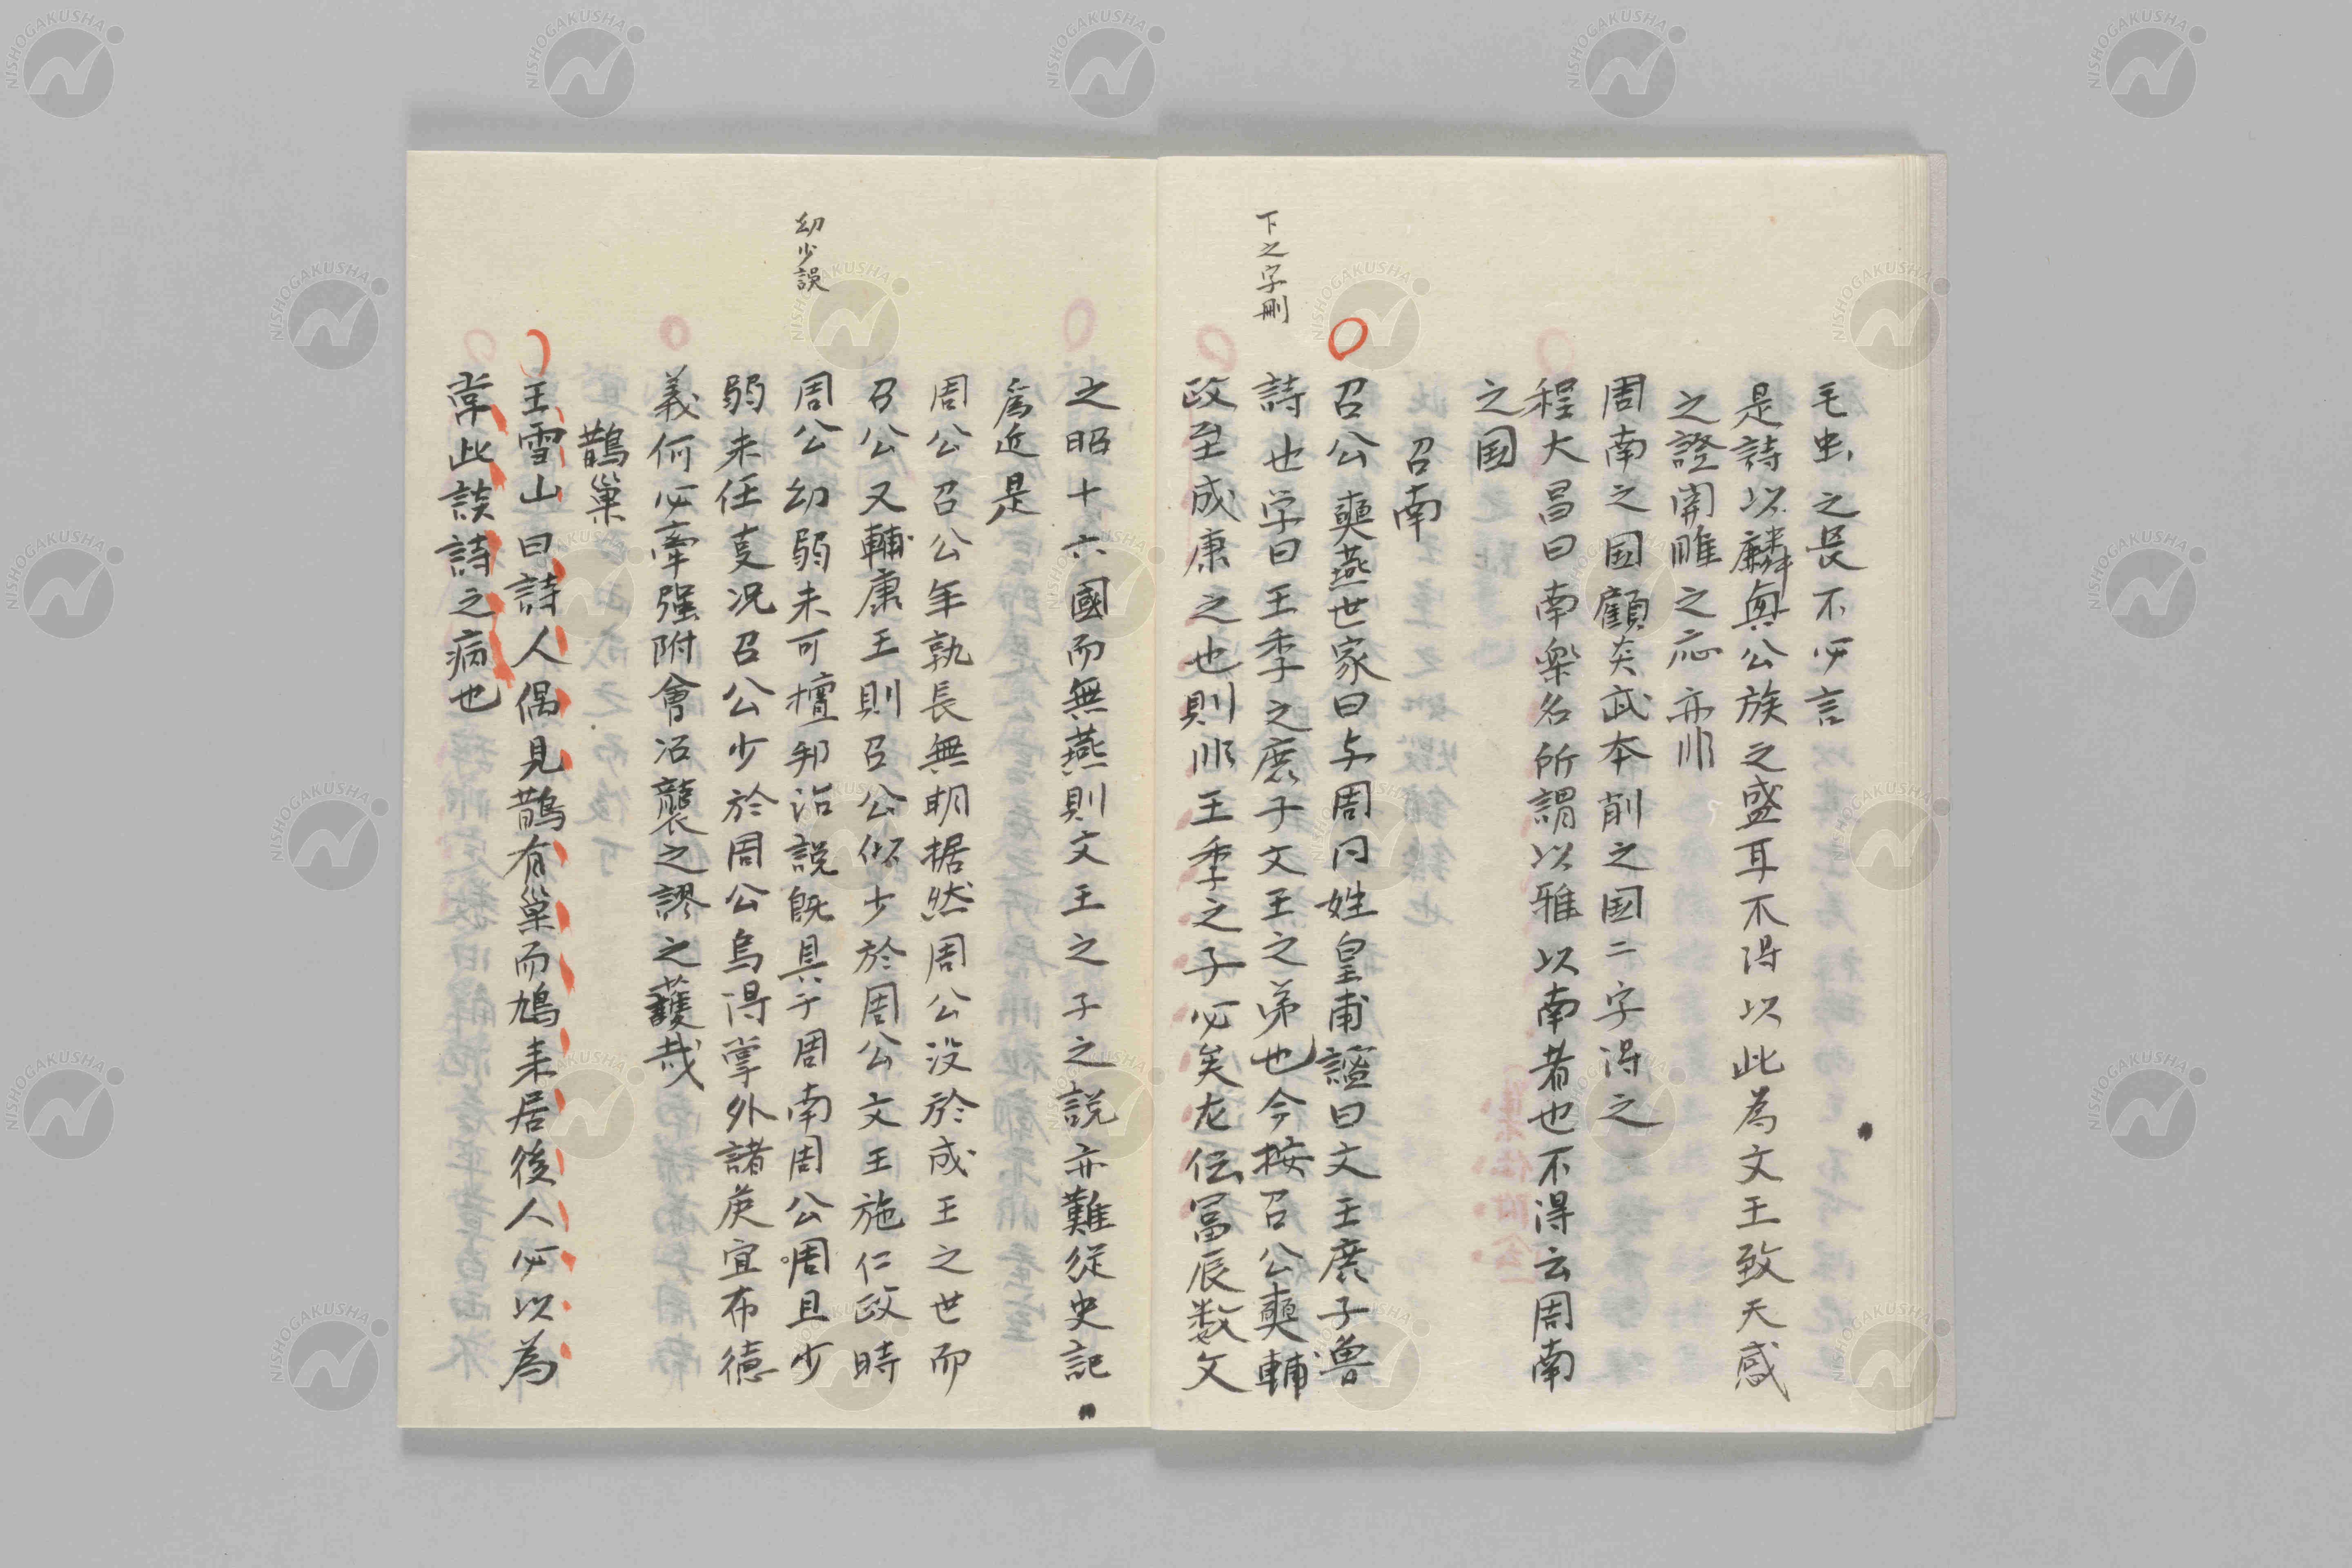 毛虫之長不必言
是詩以麟興公族之盛耳不得以此為文王致天感
之證関雎之応亦非
周南之国顧炎武本削之国二字得之
程大昌曰南楽名所謂以雅以南者也不得云周南
之国
召南
召公奭燕世家曰与周同姓皇甫謐曰文王庶子魯
下之字刪
詩也学曰王季之庶子文王之弟也今按召公奭輔
政至成康之也則非王季之子必矣左伝冨辰数文
之昭十六國而無燕則文王之子之説亦難従史記
為近是
周公召公年孰長無明据然周公没於成王之世而
召公又輔康王則召公似少於周公文王施仁政時
幼少誤
周公幼弱未可擅邦治説既具于周南周公周且少
弱未任㕝况召公少於周公烏得掌外諸侯宜布徳
義何必牽强附會沿襲之謬之護哉
鵲巣
王雪山曰詩人偶見鵲有巣而鳩来居後人必以為
常此談詩之病也